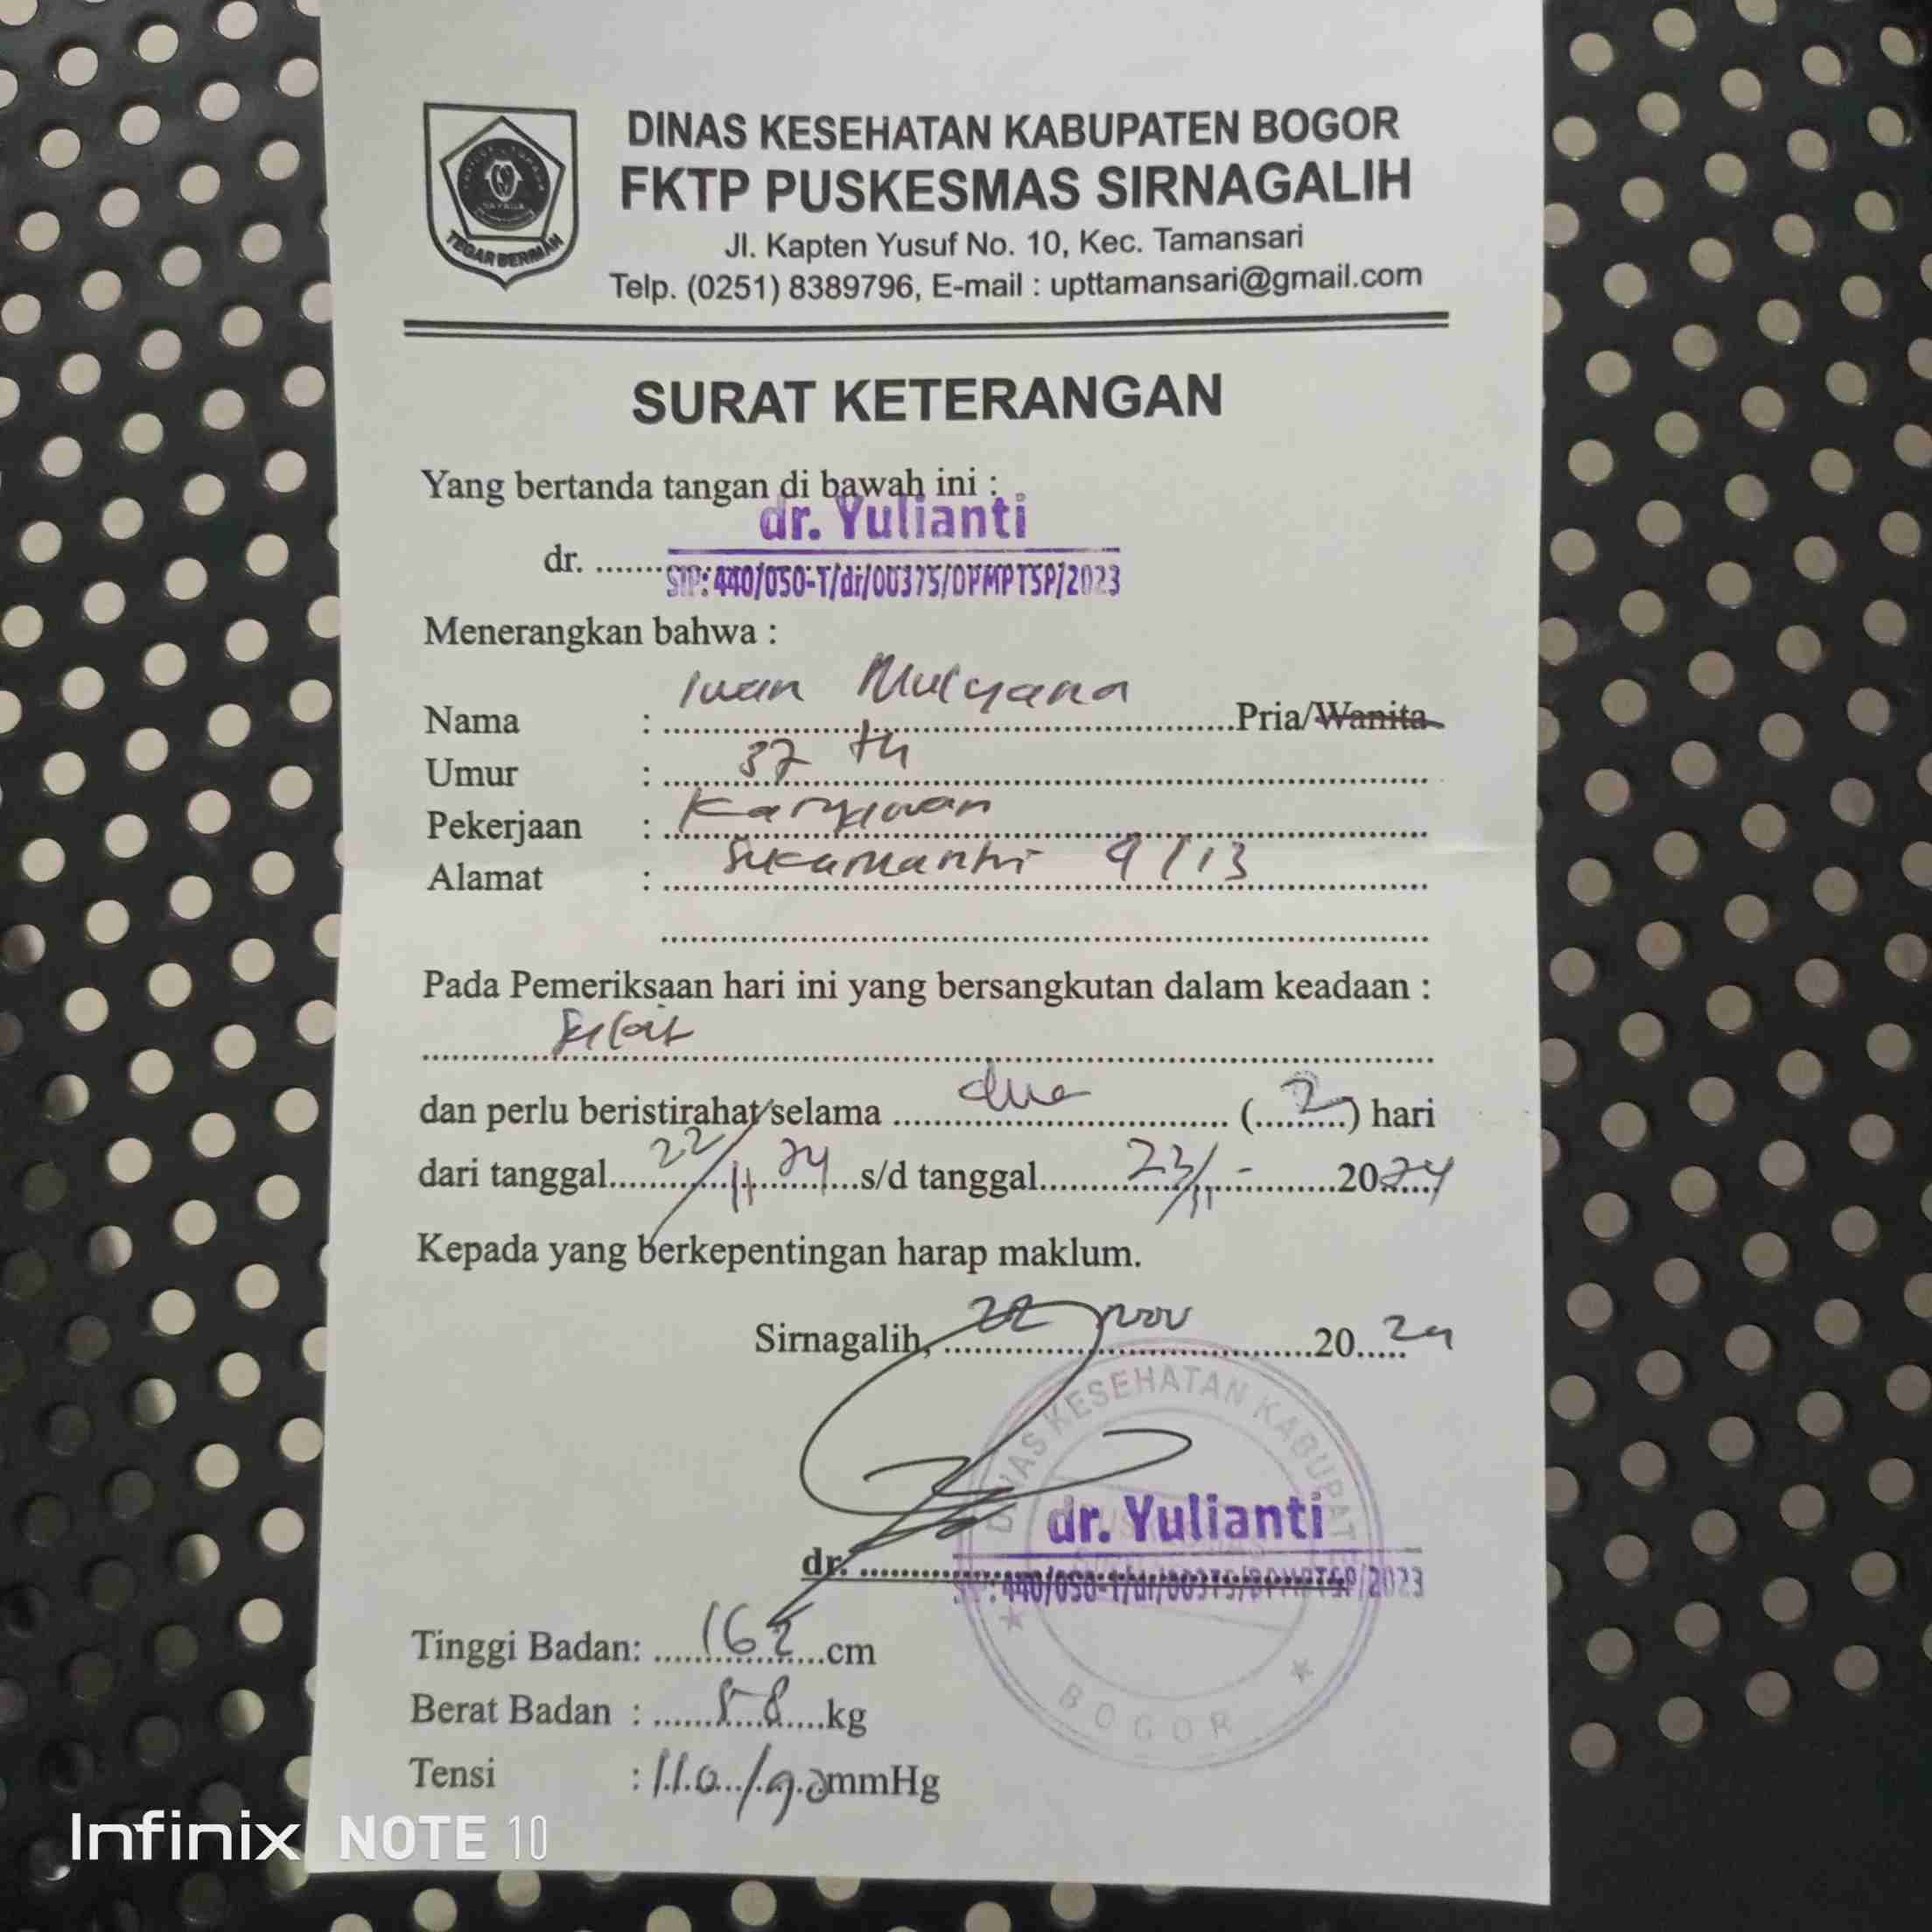 DINAS KESEHATAN KABUPATEN BOGOR
FKTP PUSKESMAS SIRNAGALIH
Jl. Kapten Yusuf No. 10, Kec. Tamansari
Telp. (0251) 8389796, E-mail : upttamansari@gmail.com
TEGAR BERIMAN
SURAT KETERANGAN
Yang bertanda tangan di bawah ini :
dr. Yulianti
dr. .......SIP: 440/050-T/dr/00375/DPMPTSP/2023
Menerangkan bahwa :
Nama : Iwan Mulyana Pria/Wanita
Umur : 37 th
Pekerjaan : Karyawan
Alamat : Sukamantri 9/13
Pada Pemeriksaan hari ini yang bersangkutan dalam keadaan :
dan perlu beristirahat/selama dua (2) hari
dari tanggal 22/11 24 s/d tanggal 23/11 - 2024
Kepada yang berkepentingan harap maklum.
Sirnagalih, 22 Nov 20 24
DINAS KESEHATAN KABUPAT
dr. Yulianti
dr. SIP: 440/050-T/dr/00375/DPMPTSP/2023
BOGOR
Tinggi Badan: 162 cm
Berat Badan : 58 kg
Tensi : 110/90 mmHg
Infinix NOTE 10